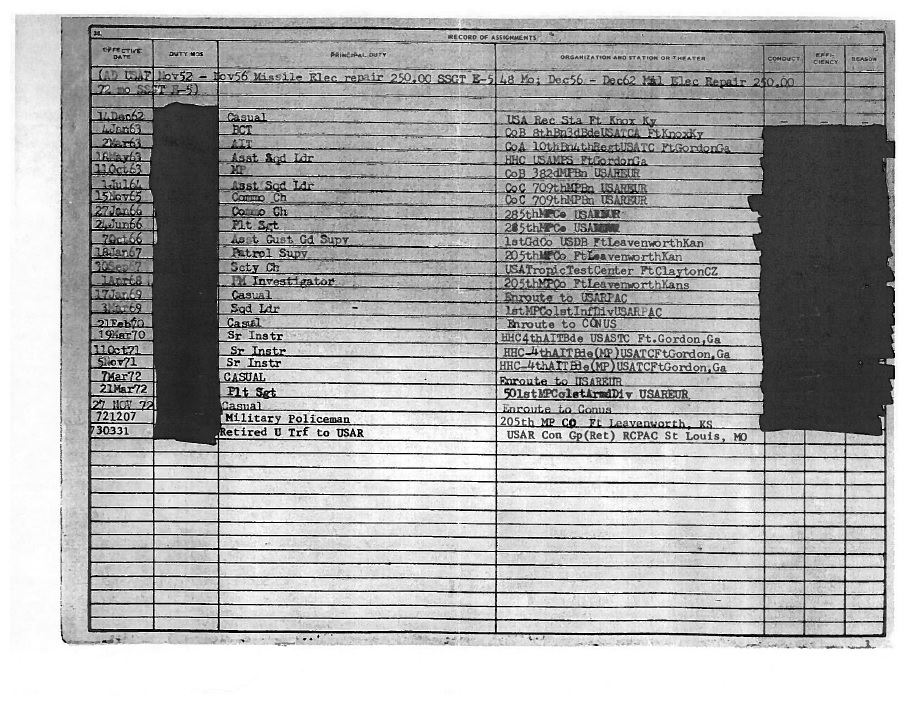 38. RECORD OF ASSIGNMENTS
EFFECTIVE DATE DUTY MOS PRINCIPAL DUTY ORGANIZATION AND STATION OR THEATER CONDUCT EFFI- CIENCY SEASON
(AD USAF Nov52 - Nov56 Missile Elec repair 250.00 SSGT E-5 48 Mo; Dec56 - Dec62 Msl Elec Repair 250.00
72 mo SSGT E-5)
14Dec62 Casual USA Rec Sta Ft Knox Ky
4Jan63 BCT CoB 8thBn3dBdeUSATCA FtKnoxKy
2Mar63 AIT CoA 10thBn4thRegtUSATC FtGordonGa
16May63 Asst Sqd Ldr HHC USAMPS FtGordonGa
11Oct63 MP CoB 382dMPBn USAREUR
1Jul64 Asst Sqd Ldr CoC 709thMPBn USAREUR
15Nov65 Commo Ch CoC 709thMPBn USAREUR
27Jan66 Commo Ch 285thMPCo USAREUR
24Jun66 Plt Sgt 285thMPCo USAREUR
7Oct66 Asst Cust Gd Supv 1stGdCo USDB FtLeavenworthKan
18Jan67 Patrol Supv 205thMPCo FtLeavenworthKan
30Sep67 Scty Ch USATropicTestCenter FtClaytonCZ
1Apr68 PM Investigator 205thMPCo FtLeavenworthKans
17Jan69 Casual Enroute to USARPAC
3Mar69 Sqd Ldr 1stMPCo1stInfDivUSARPAC
21Feb70 Casual Enroute to CONUS
19Mar70 Sr Instr HHC4thAITBde USASTC Ft.Gordon,Ga
11Oct71 Sr Instr HHC-4thAITBde(MP)USATCFtGordon,Ga
5Nov71 Sr Instr HHC-4thAITBde(MP)USATCFtGordon,Ga
7Mar72 CASUAL Enroute to USAREUR
21Mar72 Plt Sgt 501stMPCo1stArmdDiv USAREUR
27 NOV 72 Casual Enroute to Conus
721207 Military Policeman 205th MP CO Ft Leavenworth, KS
730331 Retired U Trf to USAR USAR Con Gp(Ret) RCPAC St Louis, MO